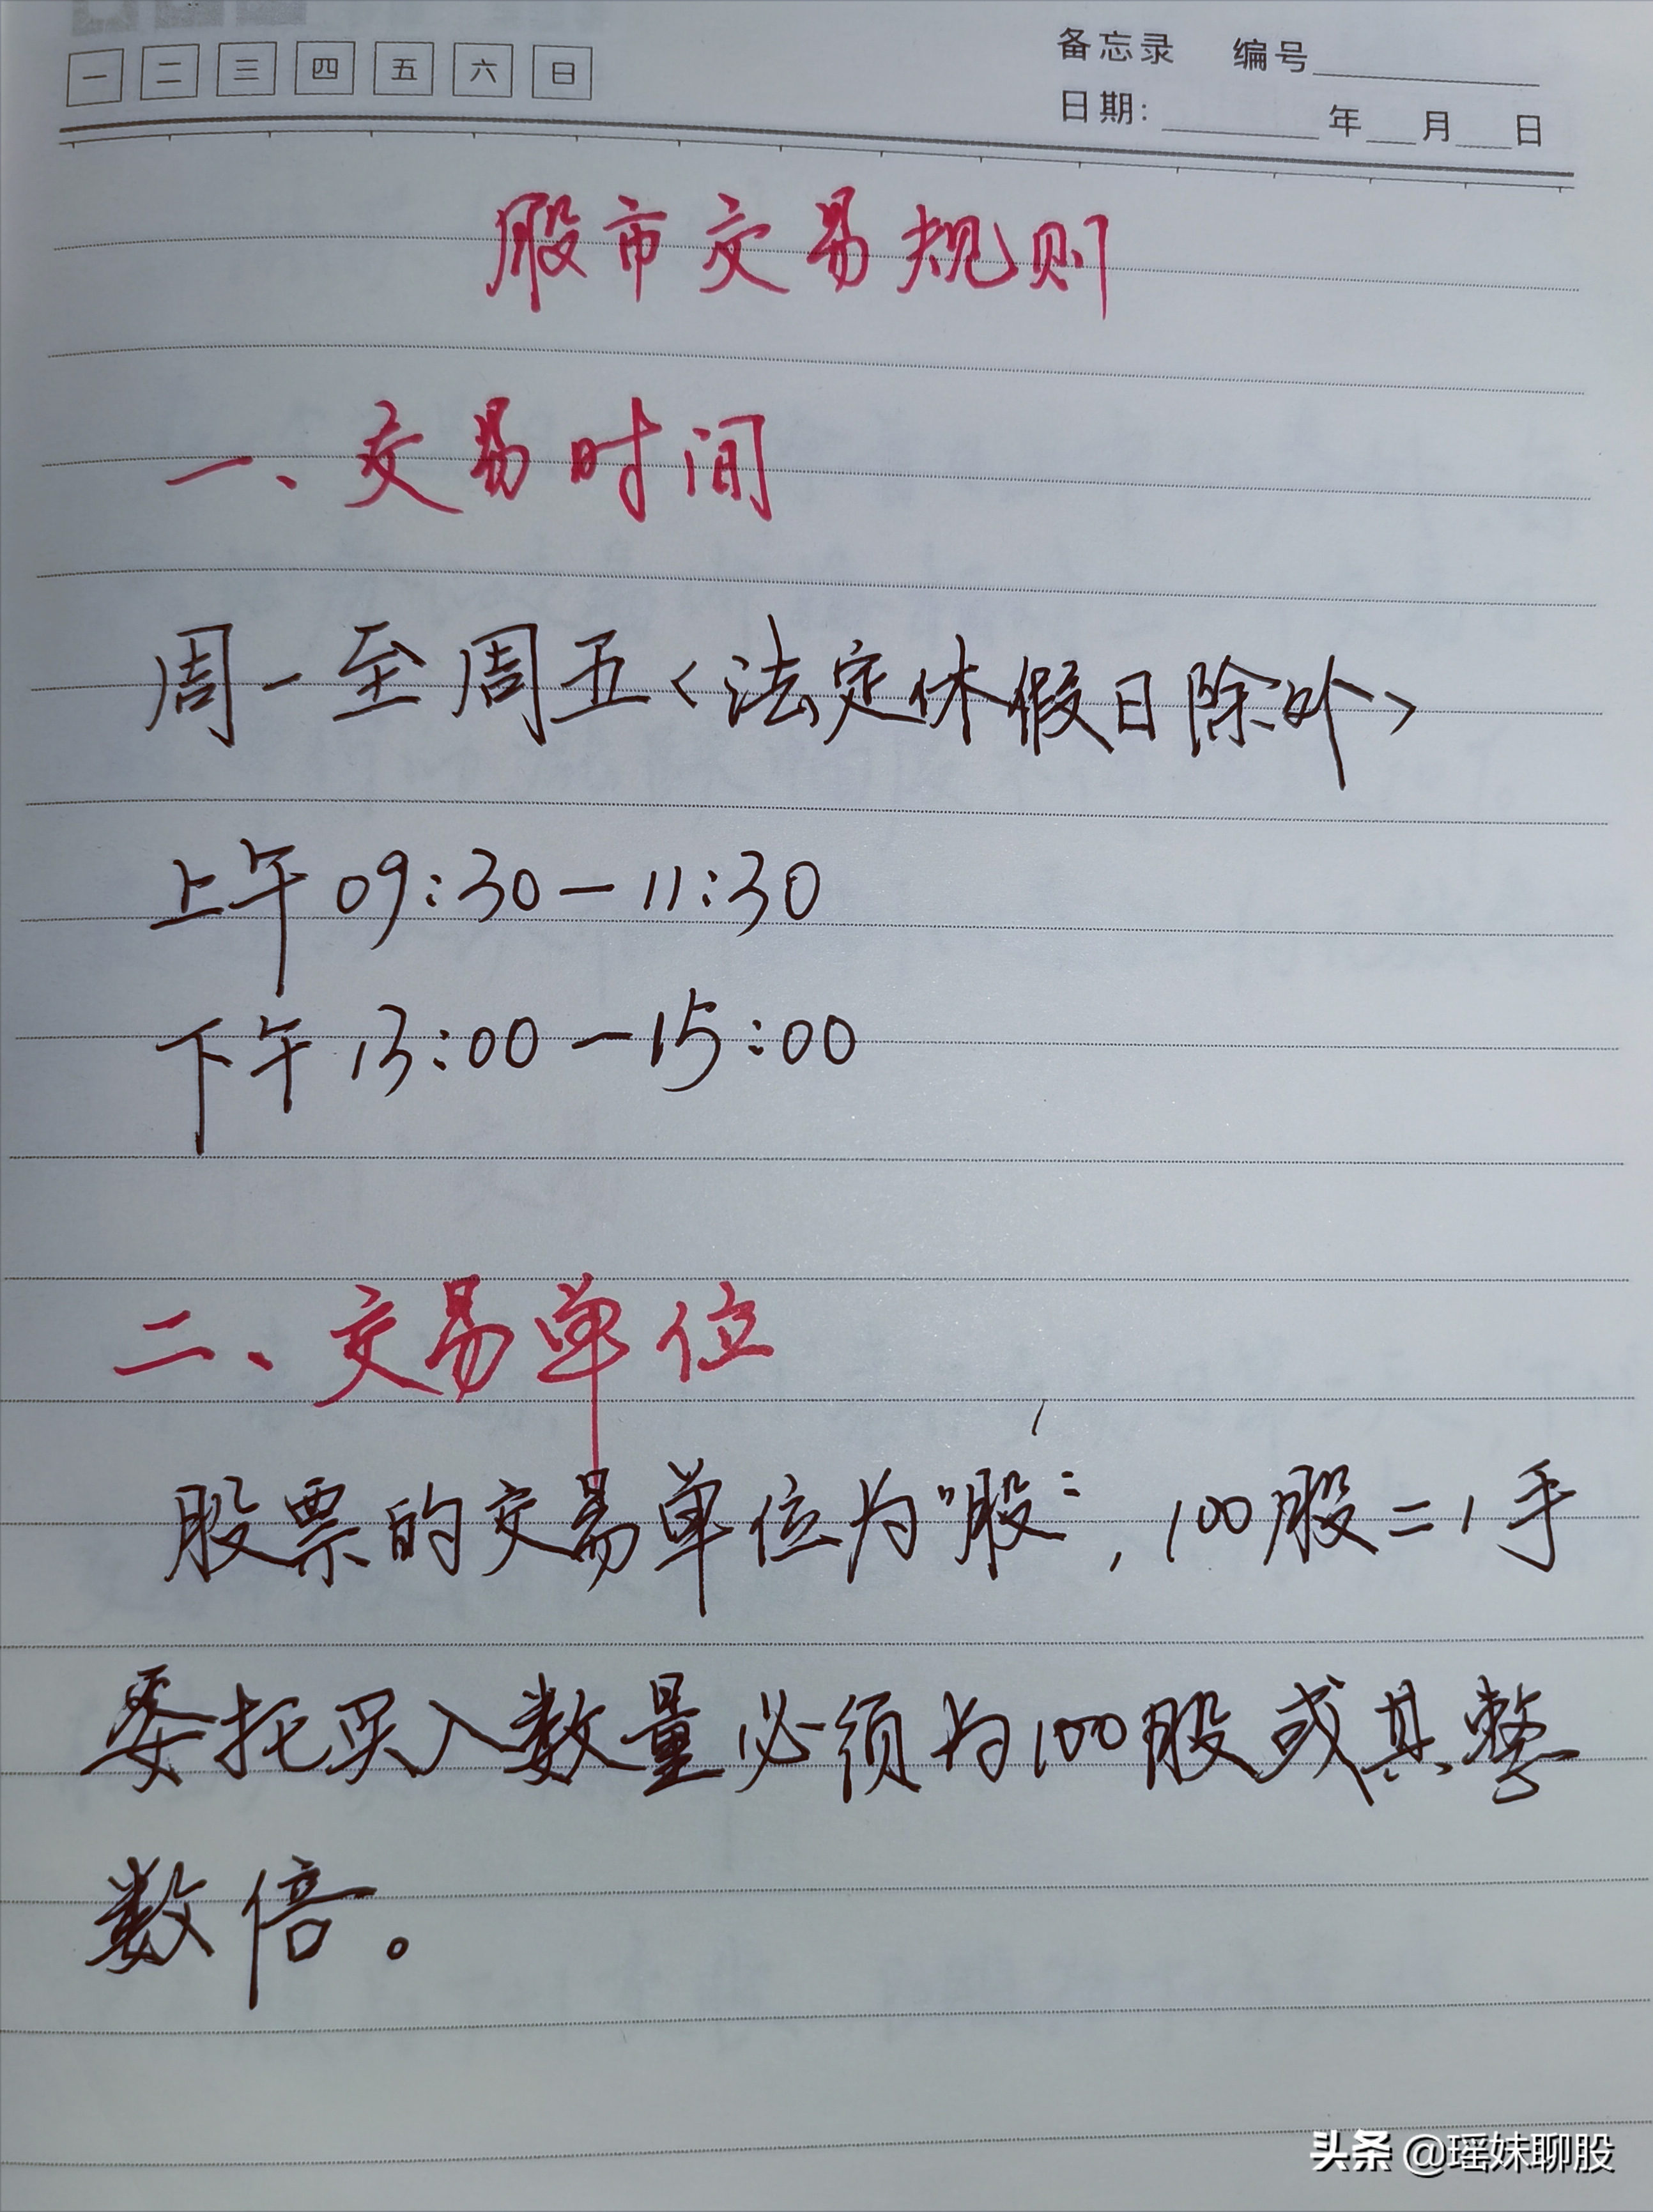 一 二 三 四 五 六 日
备忘录 编号
日期: 年 月 日
股市交易规则
一、交易时间
周一至周五<法定休假日除外>
上午 09:30-11:30
下午 13:00-15:00
二、交易单位
股票的交易单位为"股", 100股=1手
委托买入数量必须为100股或其整
数倍。
头条 @瑶妹聊股